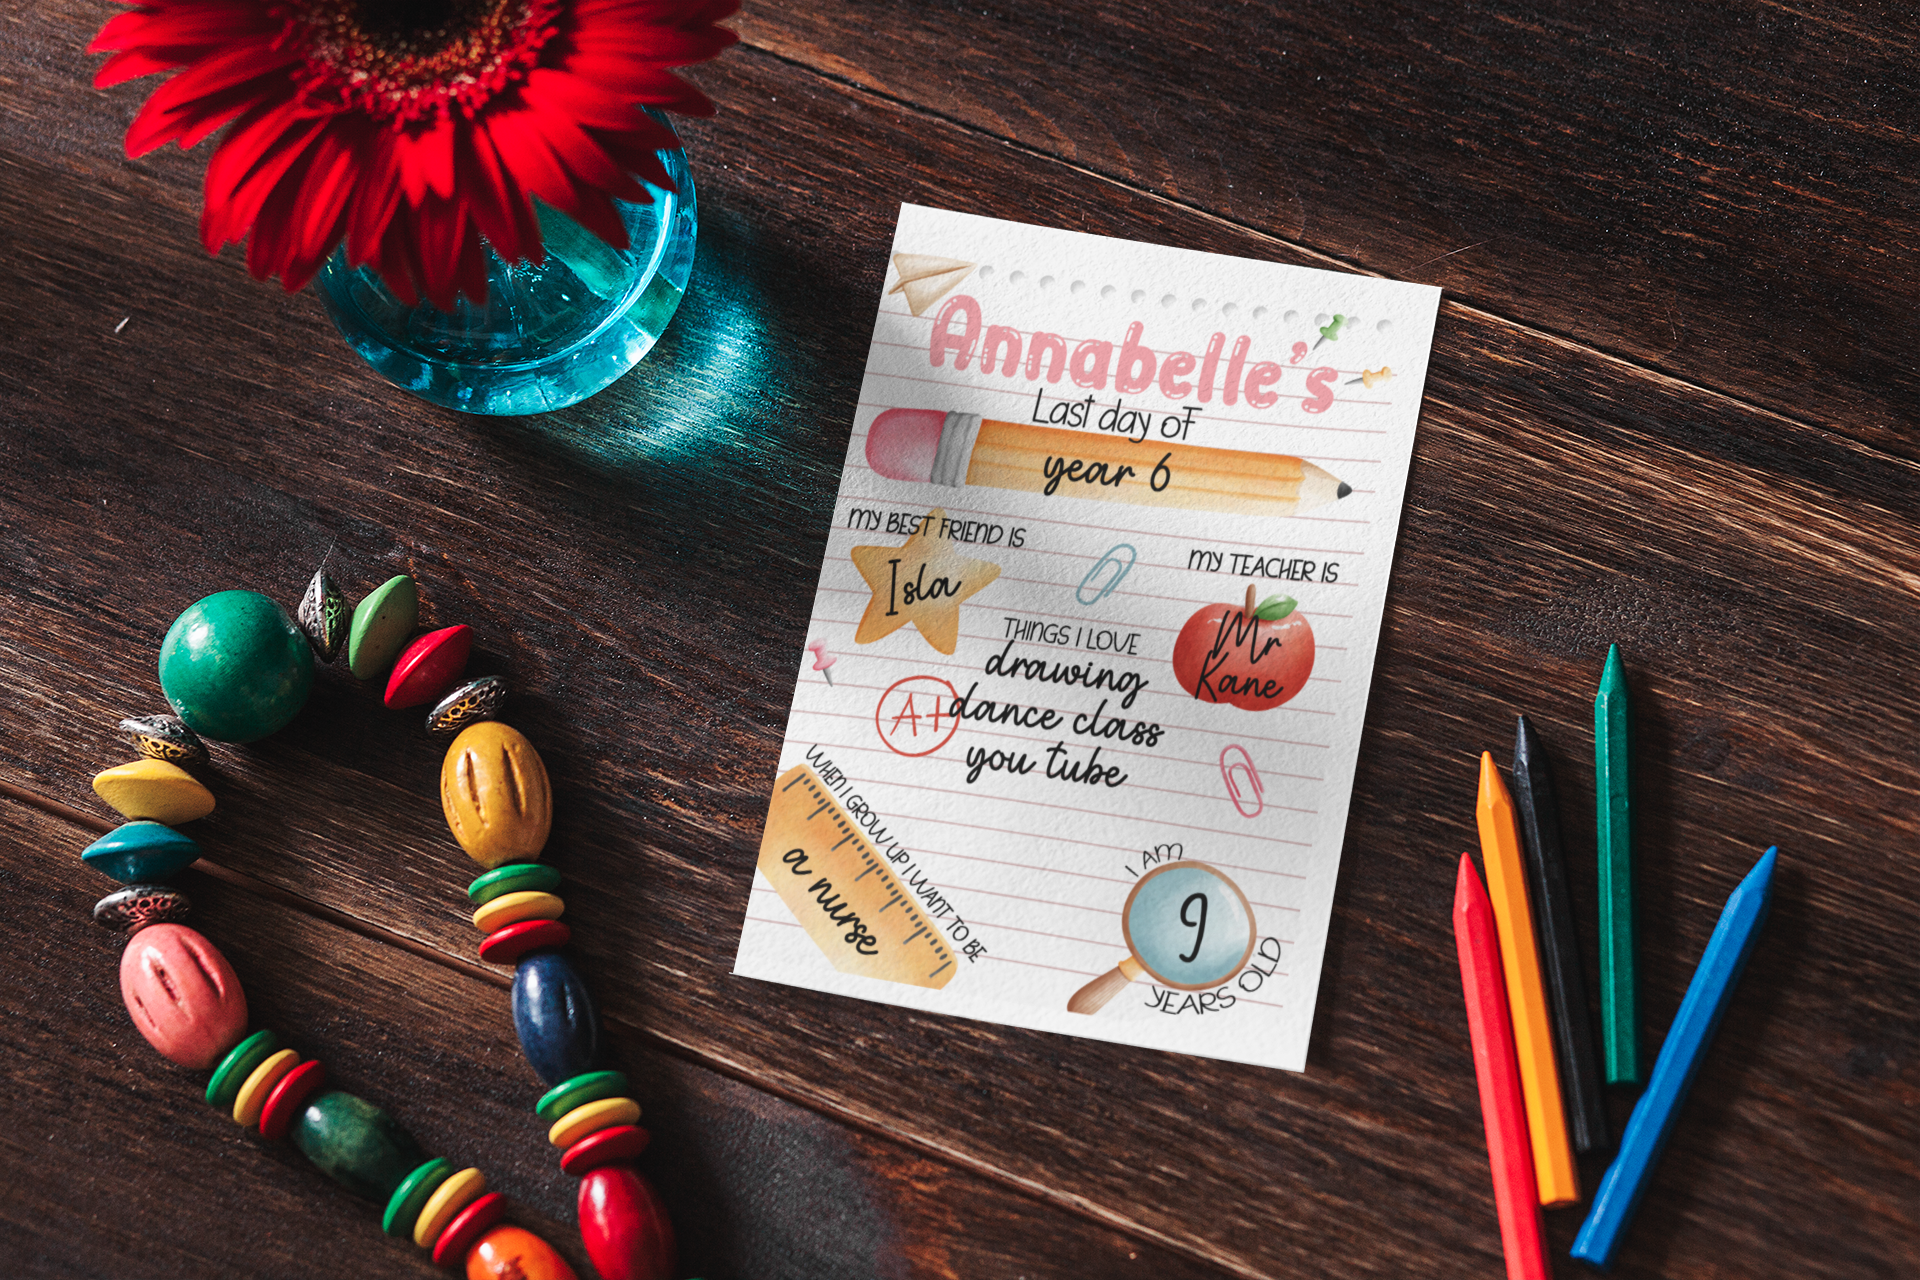 Annabelle's
Last day of
year 6
MY BEST FRIEND IS
Isla
MY TEACHER IS
Mr
Kane
THINGS I LOVE
drawing
dance class
you tube
A+
WHEN I GROW UP I WANT TO BE
a nurse
I AM
9
YEARS OLD